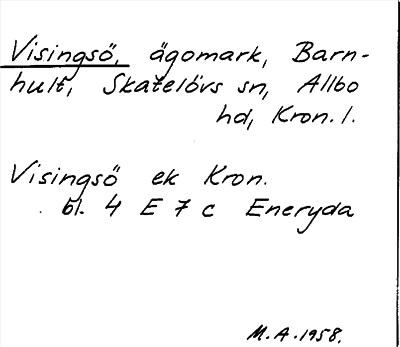 Visingsö, ägomark, Barn-
hult, Skatelövs sn, Allbo
hd, Kron. l.
Visingsö ek Kron.
bl. 4 E 7 c Eneryda
M.A. 1958.